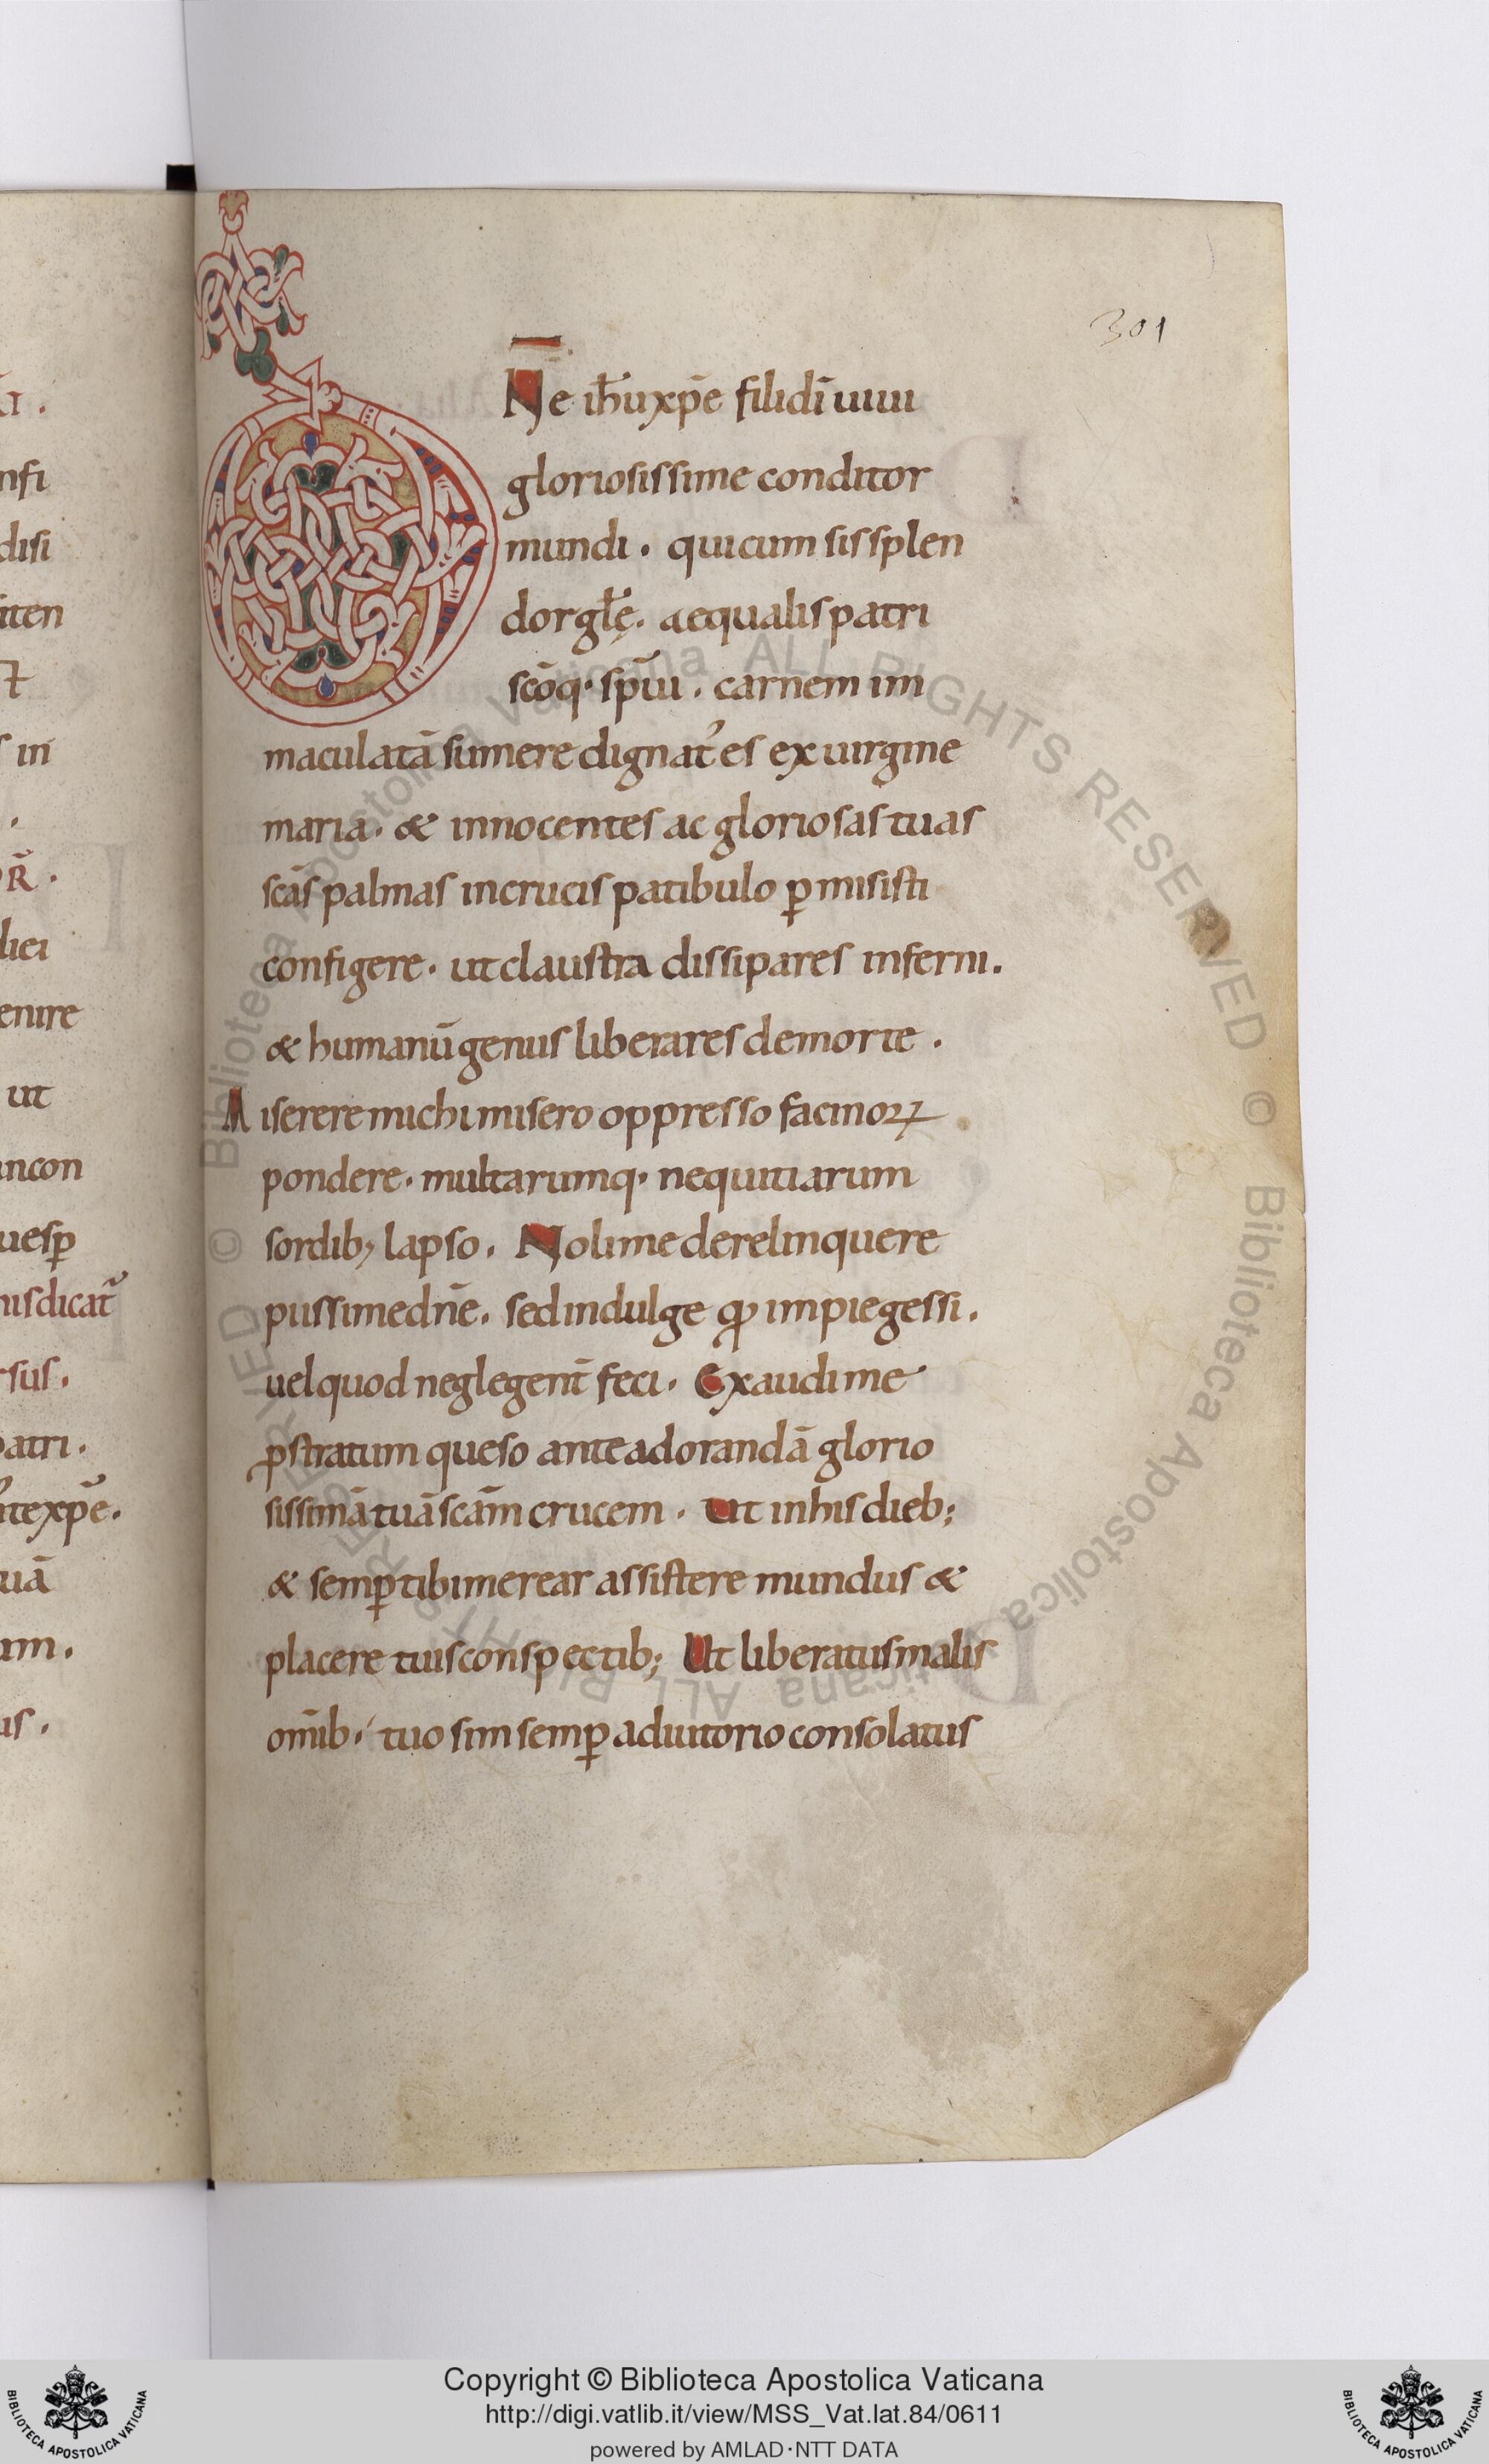 ĩ.
nfi
disi
iten
in
.
R̃.
liei
enire
ut
incon
uesꝑ
nisdicat᷑
rsus.
patri.
nt̾exp̄e.
uā
um.
us.
301
DN̄e ih̄uxp̄e filidī uiui
gloriosissime conditor
mundi. quicum sis splen
dorgl̄ę. aequalispatri
scōq· sp̄ui. carnem im
maculatā sumere dignat᾽es ex uirgine
maria. & innocentes ac gloriosas tuas
scās palmas incrucis patibulo ꝑmisisti
configere. ut claustra dissipares inferni.
& humanū genus liberares demorte.
Miserere michi misero oppresso facinoꝝ
pondere. multarumq· nequitiarum
sordib; lapso. Nolime derelinquere
piissimedn̄e. sedindulge qđ impiegessi.
uelquod neglegent̄ feci. Exaudime
ꝓstratum queso anteadorandā glorio
sissimā tuā scām crucem. Ut inhis dieb;
& semꝑ tibimerear assistere mundus &
placere tuisconspectib; Ut liberatusmalis
om̄ib· tuo sim semꝑ adiutorio consolatus
© Biblioteca Apostolica Vaticana ALL RIGHTS RESERVED © Biblioteca Apostolica Vaticana ALL RIGHTS RESERVED
Copyright © Biblioteca Apostolica Vaticana
http://digi.vatlib.it/view/MSS_Vat.lat.84/0611
powered by AMLAD·NTT DATA
BIBLIOTECA APOSTOLICA VATICANA
BIBLIOTECA APOSTOLICA VATICANA